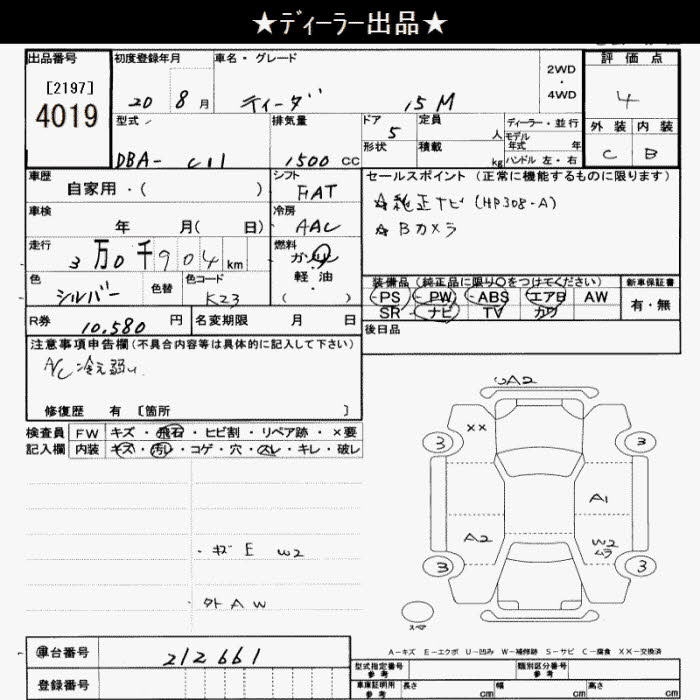 ★ディーラー出品★
出品番号 初度登録年月 車名・グレード 2WD・4WD 評価点
[2197]
4019
20 8月 ティーダ 15M 4
型式 排気量 ドア 定員 人 ディーラー・並行 外装 内装
モデル年式 年
DBA- C11 1500 CC 5 形状 積載 kg ハンドル 左・右 C B
車歴 シフト セールスポイント (正常に機能するものに限ります)
自家用・( ) FAT
☆純正ナビ(HP308-A)
車検 冷房
年 月( 日) AAC
☆Bカメラ
走行 燃料
3万0千904km ガソリン・軽油
( )
装備品(純正品に限り○をつけてください) 新車保証書
色 色替 色コード
シルバー K23
PS PW ABS エアB AW 有・無
SR ナビ TV カワ
R券 10,580 円 名変期限 月 日
後日品
注意事項申告欄(不具合内容等は具体的に記入して下さい)
A/C冷え弱い
修復歴 有 〔箇所 〕
検査員 FW キズ・飛石・ヒビ割・リペア跡・×要
記入欄 内装 キズ・汚れ・コゲ・穴・スレ・キレ・破レ
UA2
××
3 3
A1
A2 W2
ムラ
3 3
・キズ E W2
外 A W
スペア
A-キズ E-エクボ U-凹み W-補修跡 S-サビ C-腐食 XX-交換済
車台番号 212661
登録番号
型式指定番号 参考 類別区分番号 参考
車庫証明用 参考 長さ cm 幅 cm 高さ cm